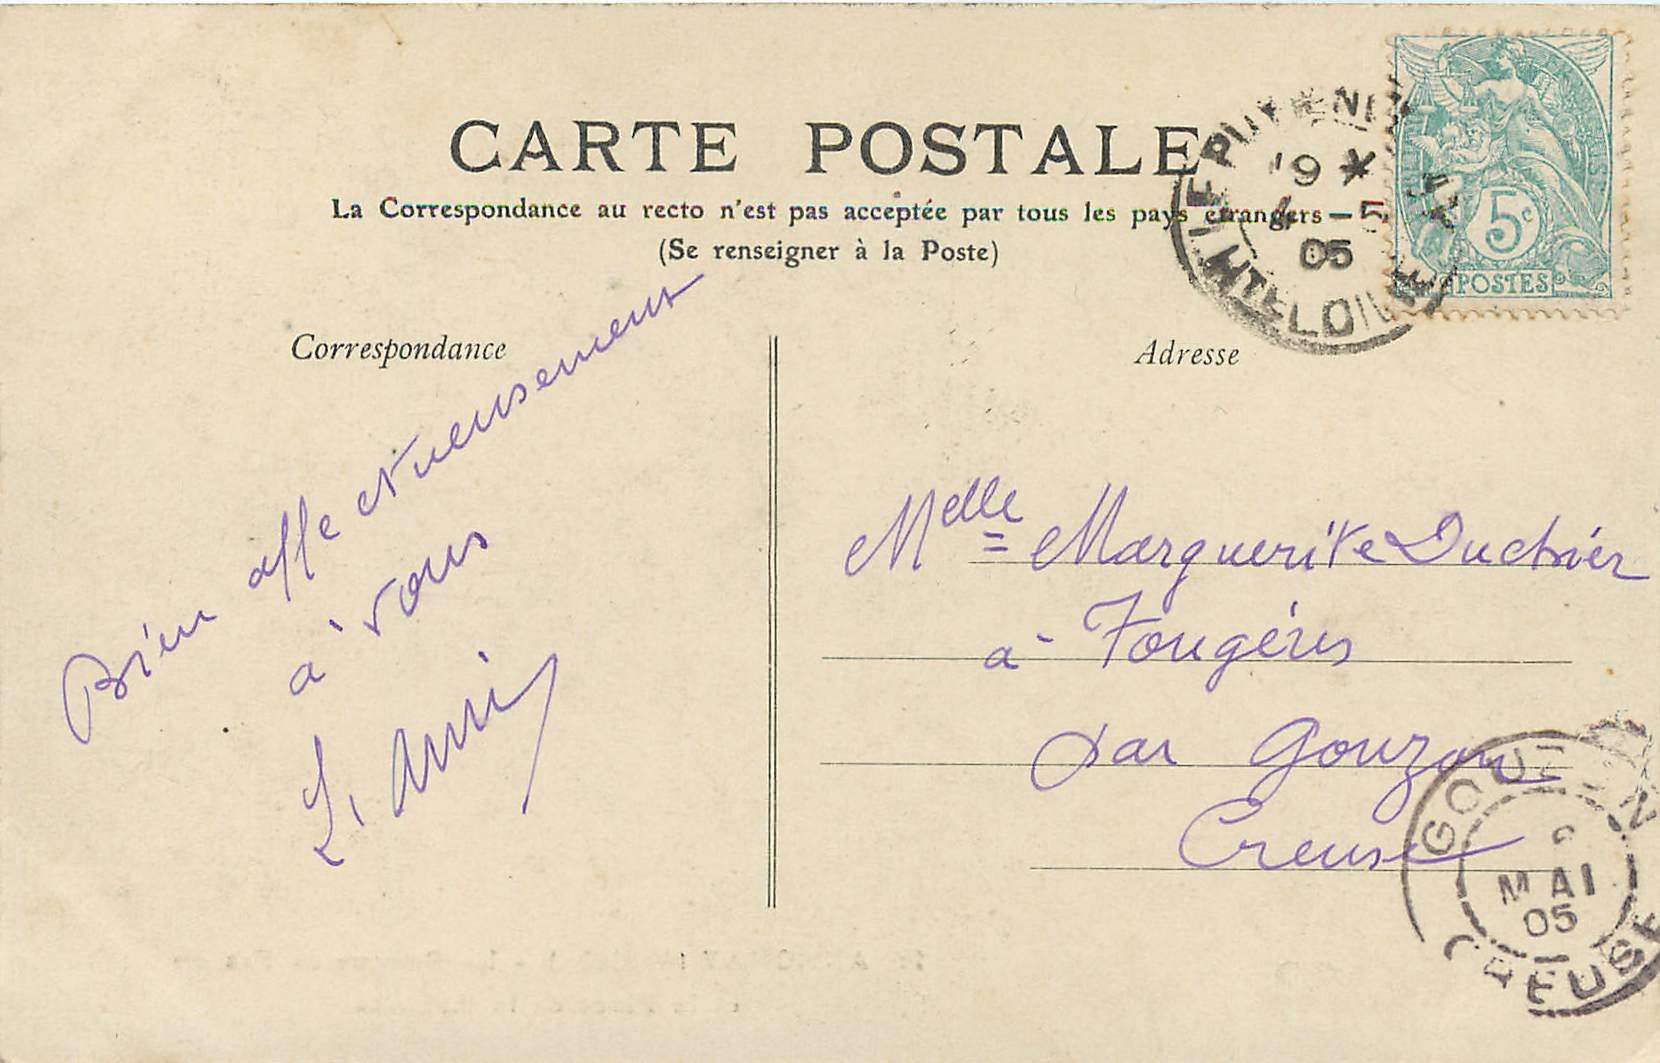 CARTE POSTALE
La Correspondance au recto n'est pas acceptée par tous les pays étrangers —
(Se renseigner à la Poste)
5c
POSTES
9 *
4 5
05
HTE LOIRE
Correspondance
Bien affectueusement
à vous
Adresse
Melle Marguerite Duchier
à Fougères
par Gouzon
Creuse
GOUZON
MAI
05
CREUSE